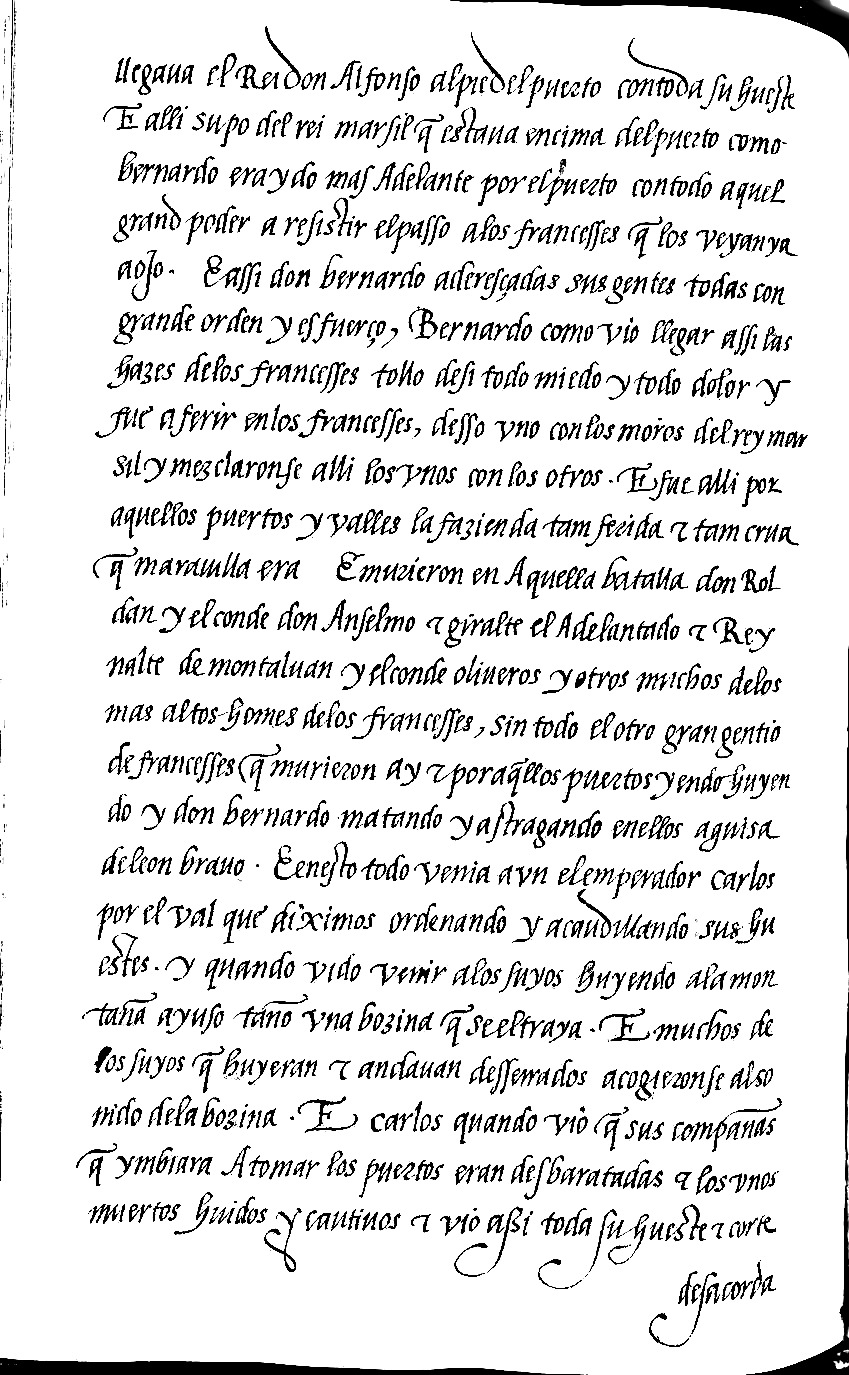 llegaua el Rei don Alfonso al pie del puerto con toda su hueste
E alli supo del rei marsil q̃ estaua encima del puerto como
bernardo era ydo mas Adelante por el puerto con todo aquel
grand poder a resistir el passo a los francesses q̃ los veyan ya
a ojo. E assi don bernardo aderesçadas sus gentes todas con
grande orden y esfuerço, Bernardo como vio llegar assi las
hazes de los francesses tollo de si todo miedo y todo dolor y
fue a ferir en los francesses, desso vno con los moros del rey mar
sil y mezclaronse alli los vnos con los otros. E fue alli por
aquellos puertos y valles la fazienda tam ferida & tam crua
q̃ marauilla era E murieron en Aquella batalla don Rol
dan y el conde don Anselmo & giralte el Adelantado & Rey
nalte de montaluan y el conde oliueros y otros muchos de los
mas altos homes de los francesses, sin todo el otro gran gentio
de francesses q̃ murieron ay & por aq̃llos puertos yendo huyen
do y don bernardo matando y astragando en ellos a guisa
de leon brauo. E en esto todo venia avn el emperador carlos
por el val que diximos ordenando y acaudillando sus hu
estes. y quando vido venir a los suyos huyendo a la mon
taña ayuso taño vna bozina q̃ se el traya. E muchos de
los suyos q̃ huyeran & andauan desserrados acogieronse al so
nido de la bozina. E carlos quando vio q̃ sus compañas
q̃ ymbiara A tomar los puertos eran desbaratadas & los vnos
muertos huidos y cautiuos & vio assi toda su hueste & corte
desacorda